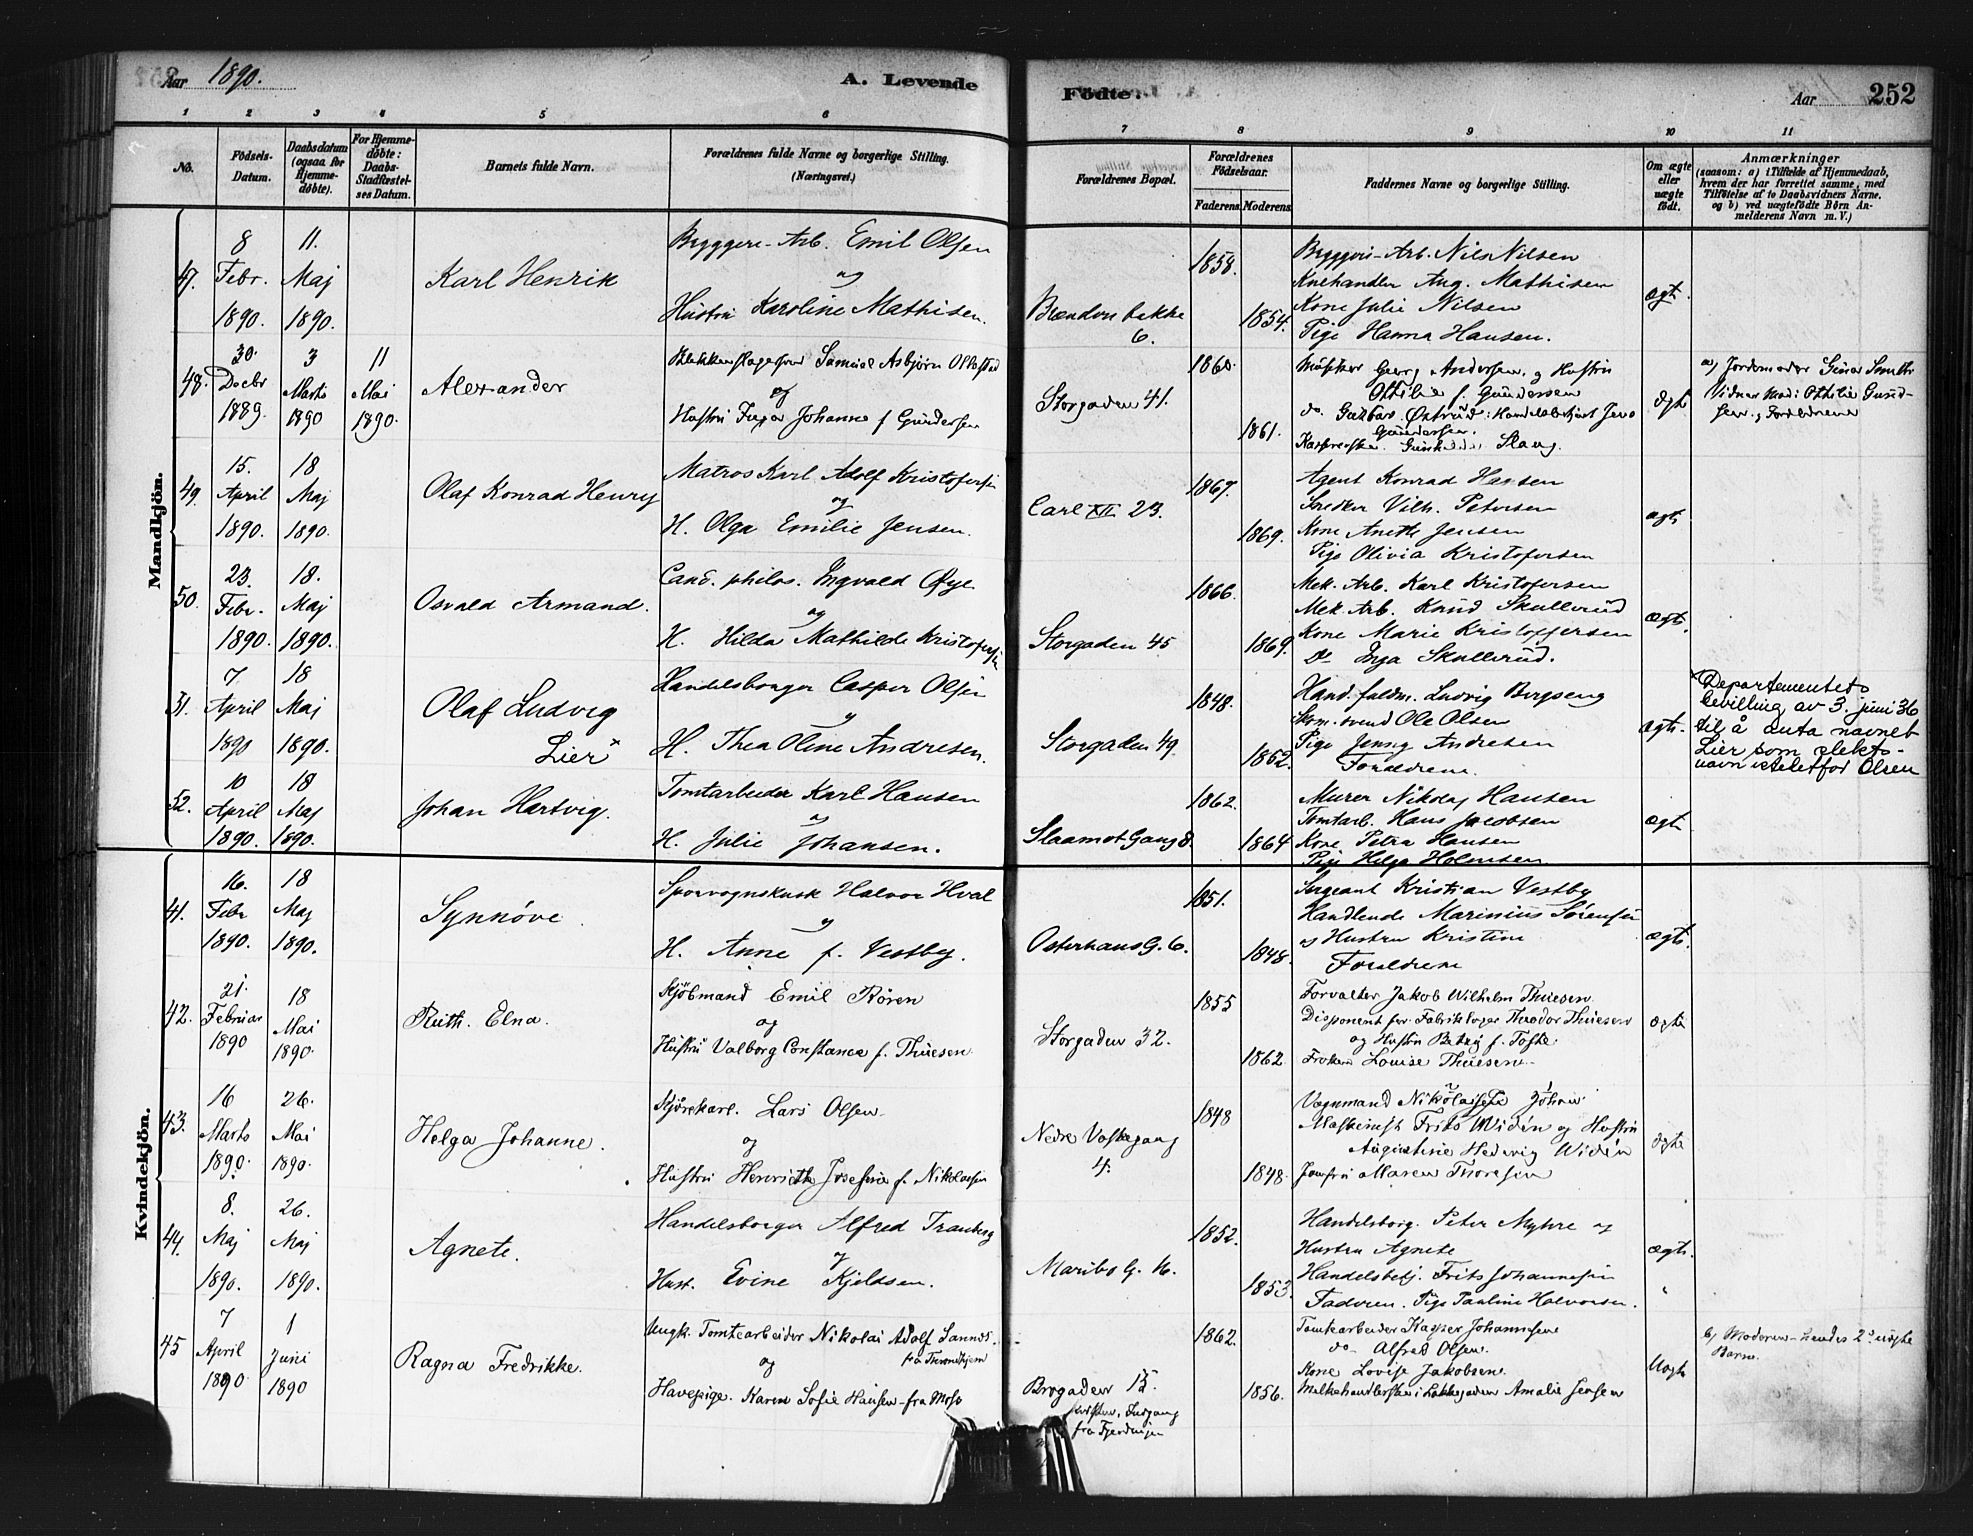 Aar 1890.
A. Levende
Födte.
Aar 252
1 2 3 4 5 6 7 8 9 10 11
No.
Födsels-Datum.
Daabsdatum (ogsaa for Hjemme-döbte).
For Hjemme-döbte: Daabs-Stadfæstel-ses Datum.
Barnets fulde Navn.
Forældrenes fulde Navne og borgerlige Stilling.
(Næringsvei.)
Forældrenes Bopæl.
Forældrenes Födselsaar.
Faderens. Moderens.
Faddernes Navne og borgerlige Stilling.
Om ægte eller uægte födt.
Anmærkninger
(saasom: a) i Tilfælde af Hjemmedaab, hvem der har forrettet samme, med Tilföielse af to Daabsvidners Navne, og b) ved uægtefödte Börn An-melderens Navn m. V.)
Mandkjön.
47. 8 Febr. 1890. 11. Maj 1890.
Karl Henrik
Bryggeri-Arb. Emil Olsen
og
Hustru Karoline Mathisen.
6.
1858. 1854.
Bryggeri-Arb. Nils Nilsen
Aug. Mathisen
Kone Julie Nilsen
Pige Hanna Hansen.
ægt.
48. 30. Decbr 1889. 3 Marts 1890 11 Mai 1890.
Alexander
Samuel Asbjörn
og
Hustru Johanne f Gundersen
Storgaden 41.
1860. 1861.
Georg Andersen og Hustru
Ottilie f. Gundersen
Gundersen.
Slang.
ægte
a) Jordemoder Smith
Vidner Mad: Otthilie Gund-
sen og Forældrene
49. 15. April 1890. 18 Maj 1890.
Olaf Konrad Henry
Matros Karl Adolf Kristofersen
og
H. Olga Emilie Jensen.
Carl XII 23.
1867. 1869.
Agent Konrad Hansen
Snedker Vilh. Petersen
Kone Anette Jensen
Pige Olivia Kristofersen
ægt.
50. 23. Febr. 1890. 18. Maj 1890.
Osvald Armand.
Cand. philos. Ingvald Øye
og
H. Hilda Mathilde Kristofersen
Storgaden 45
1866. 1869.
Mek. Arb. Karl Kristofersen
Mek. Arb. Knud Skullerud
Kone Marie Kristoffersen
Do Inga Skullerud.
ægt.
51. 7 April 1890 18 Maj 1890.
Olaf Ludvig
Lier x
Handelsborger Casper Olsen
og
H. Thea Oline Andresen.
Storgaden 49.
1848. 1862.
Hand. fuldm. Ludvig Bergseng
Skom. svend Ole Olsen
Pige Jenny Andresen
Forældrene.
ægt.
x Departementets
bevilling av 3. juni 36
til å anta navnet
Lier som slekts-
navn istedetfor Olsen
52. 10 April 1890. 18 Maj 1890.
Johan Hartvig.
Tomtarbeider Karl Hansen
og
H. Julie Johansen.
Slaamot Gang 8.
1862. 1864
Murer Nikolaj Hansen
Tomtarb. Hans Jacobsen
Kone Petra Hansen
Pige Helga Holmsen
ægt
Kvindekjön.
41. 16. Febr 1890. 18 Maj 1890.
Synnöve.
Sporvognskusk Halvor Hval
og
H. Anne f. Vestby.
Osterhaus G. 6.
1851. 1848.
Sergeant Kristian Vestby
Handlende Marinius Sörensen
og Hustru Kristine
Forældrene
ægt.
42. 21. Februar 1890 18 Mai 1890.
Ruth. Elna.
Kjöbmand Emil Rören
og
Hustru Valborg Constance f. Thuesen
Storgaden 32.
1855 1862
Forvalter Jakob Wilhelm Thuesen
Disponent for Fabrik Theodor Thuesen
og Hustru Betsy f. Tofte.
Fröken Louise Thuesen
ægte
43. 16 Marts 1890. 26. Mai 1890.
Helga Johanne.
Kjörekarl. Lars Olsen
og
Hustru Henriette Josefine f. Nikolaisen
Nedre Vaskegang
4.
1848 1848.
Vognmand Nikolai Johan
Maskinist Frits Widén og Hustru
Augustine Hedevig Widén
Jomfru Maren Thoresen
ægte
44. 8. Maj 1890. 26. Maj 1890.
Agnete.
Handelsborger Alfred Tranberg
og
Hust. Evine Kjeldsen.
Maribo G. 16.
1852. 1853.
Handelsborg. Peter Myhre og
Hustru Agnete
Handelsbetj. Frits Johannesen
Faderen. Pige Pauline Halvorsen.
ægt.
45 7 April 1890 1 Juni 1890
Ragna Fredrikke.
Ungk. Tomtearbeider Nikolai Adolf
fra Trondhjem
og
Havepige. Karen Sofie Hansen - fra Moss
Brogaden 15.
Indgang
fra Fjerdingen
1862. 1856.
Tomtearbeider Kasper Johannesen
do Alfred Olsen.
Kone Lovise Jakobsen
Melkehandlerske i Lakkegaden Amalie Jensen
Uægte
b) Moderen - hendes 2d uægte
Barn.